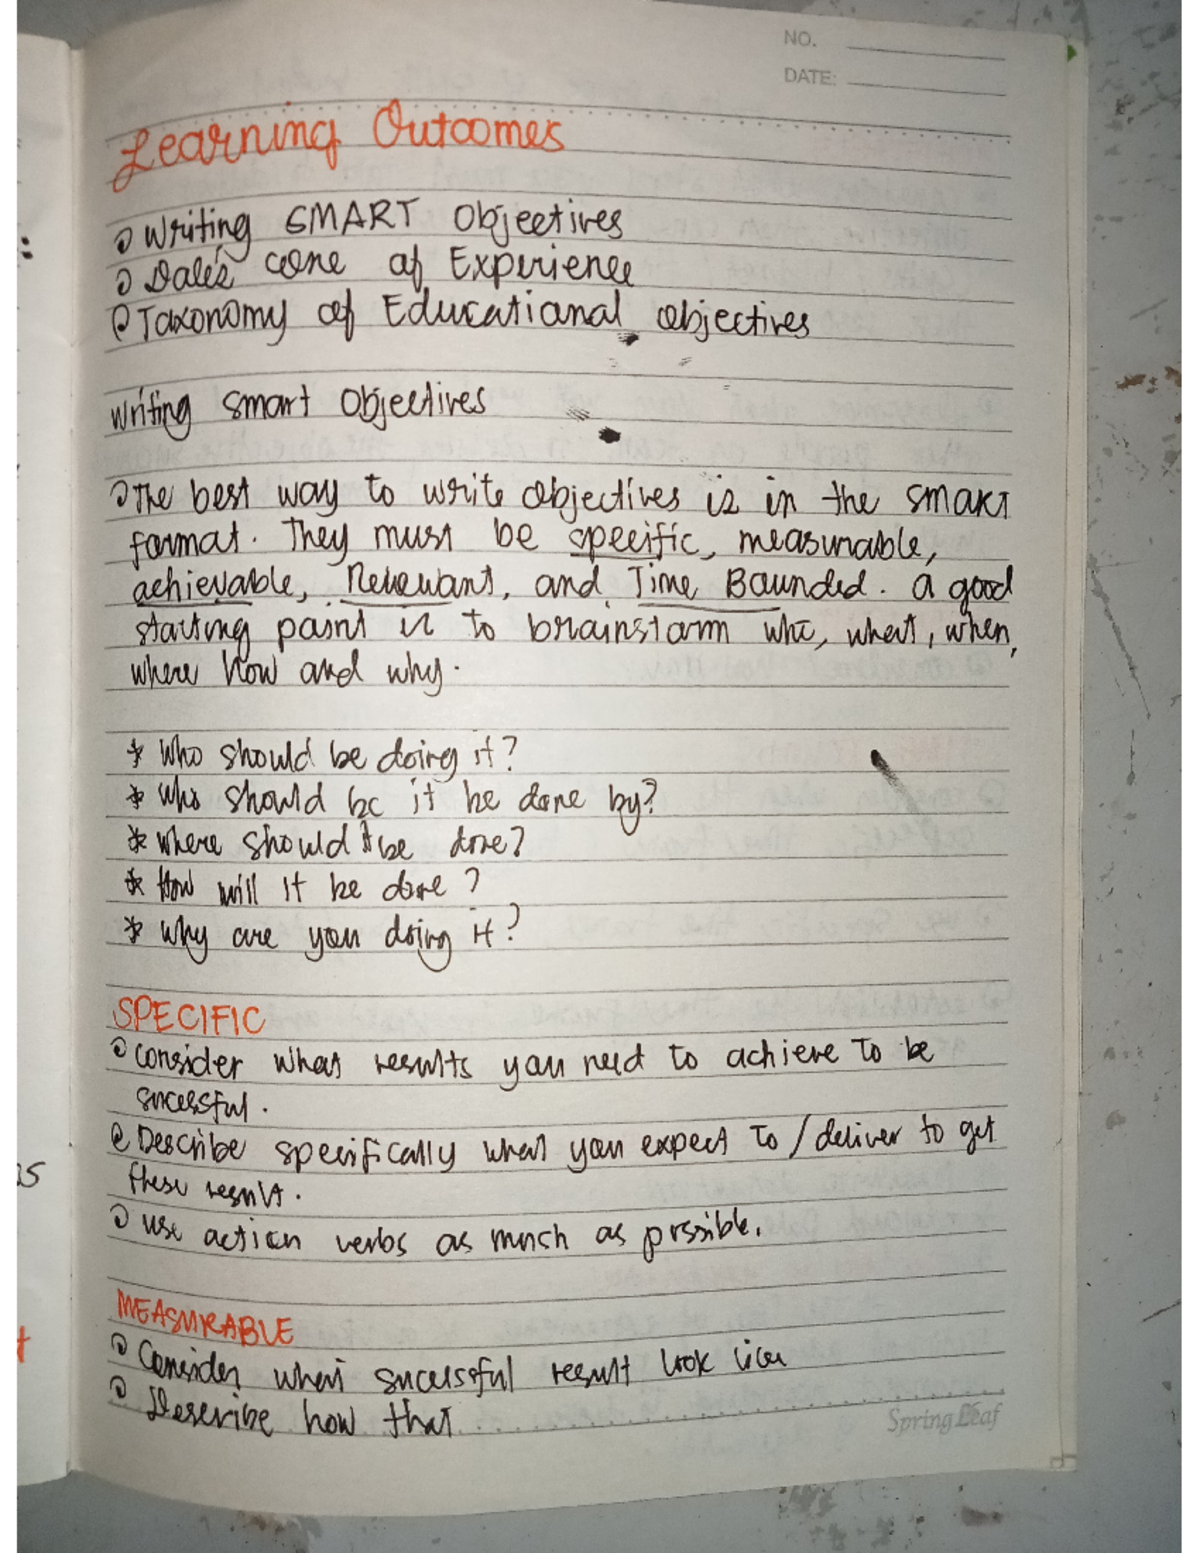 NO.
DATE:
Learning Outcomes
Writing SMART Objectives
Dale's cone of Experience
Taxonomy of Educational objectives
Writing smart Objectives
The best way to write objectives is in the smart
format. They must be specific, measurable,
achievable, Relevant, and Time Bounded. a good
starting point is to brainstorm who, what, when,
where how and why.
* Who should be doing it?
* who should be it be done by?
* where should it be done?
* How will it be done ?
* Why are you doing it?
SPECIFIC
consider what results you need to achieve to be
sucessful.
Describe specifically what you expect to / deliver to get
these result.
use action verbs as much as possible.
MEASURABLE
Consider what sucessful result look like
Describe how that
Spring Leaf
:
t